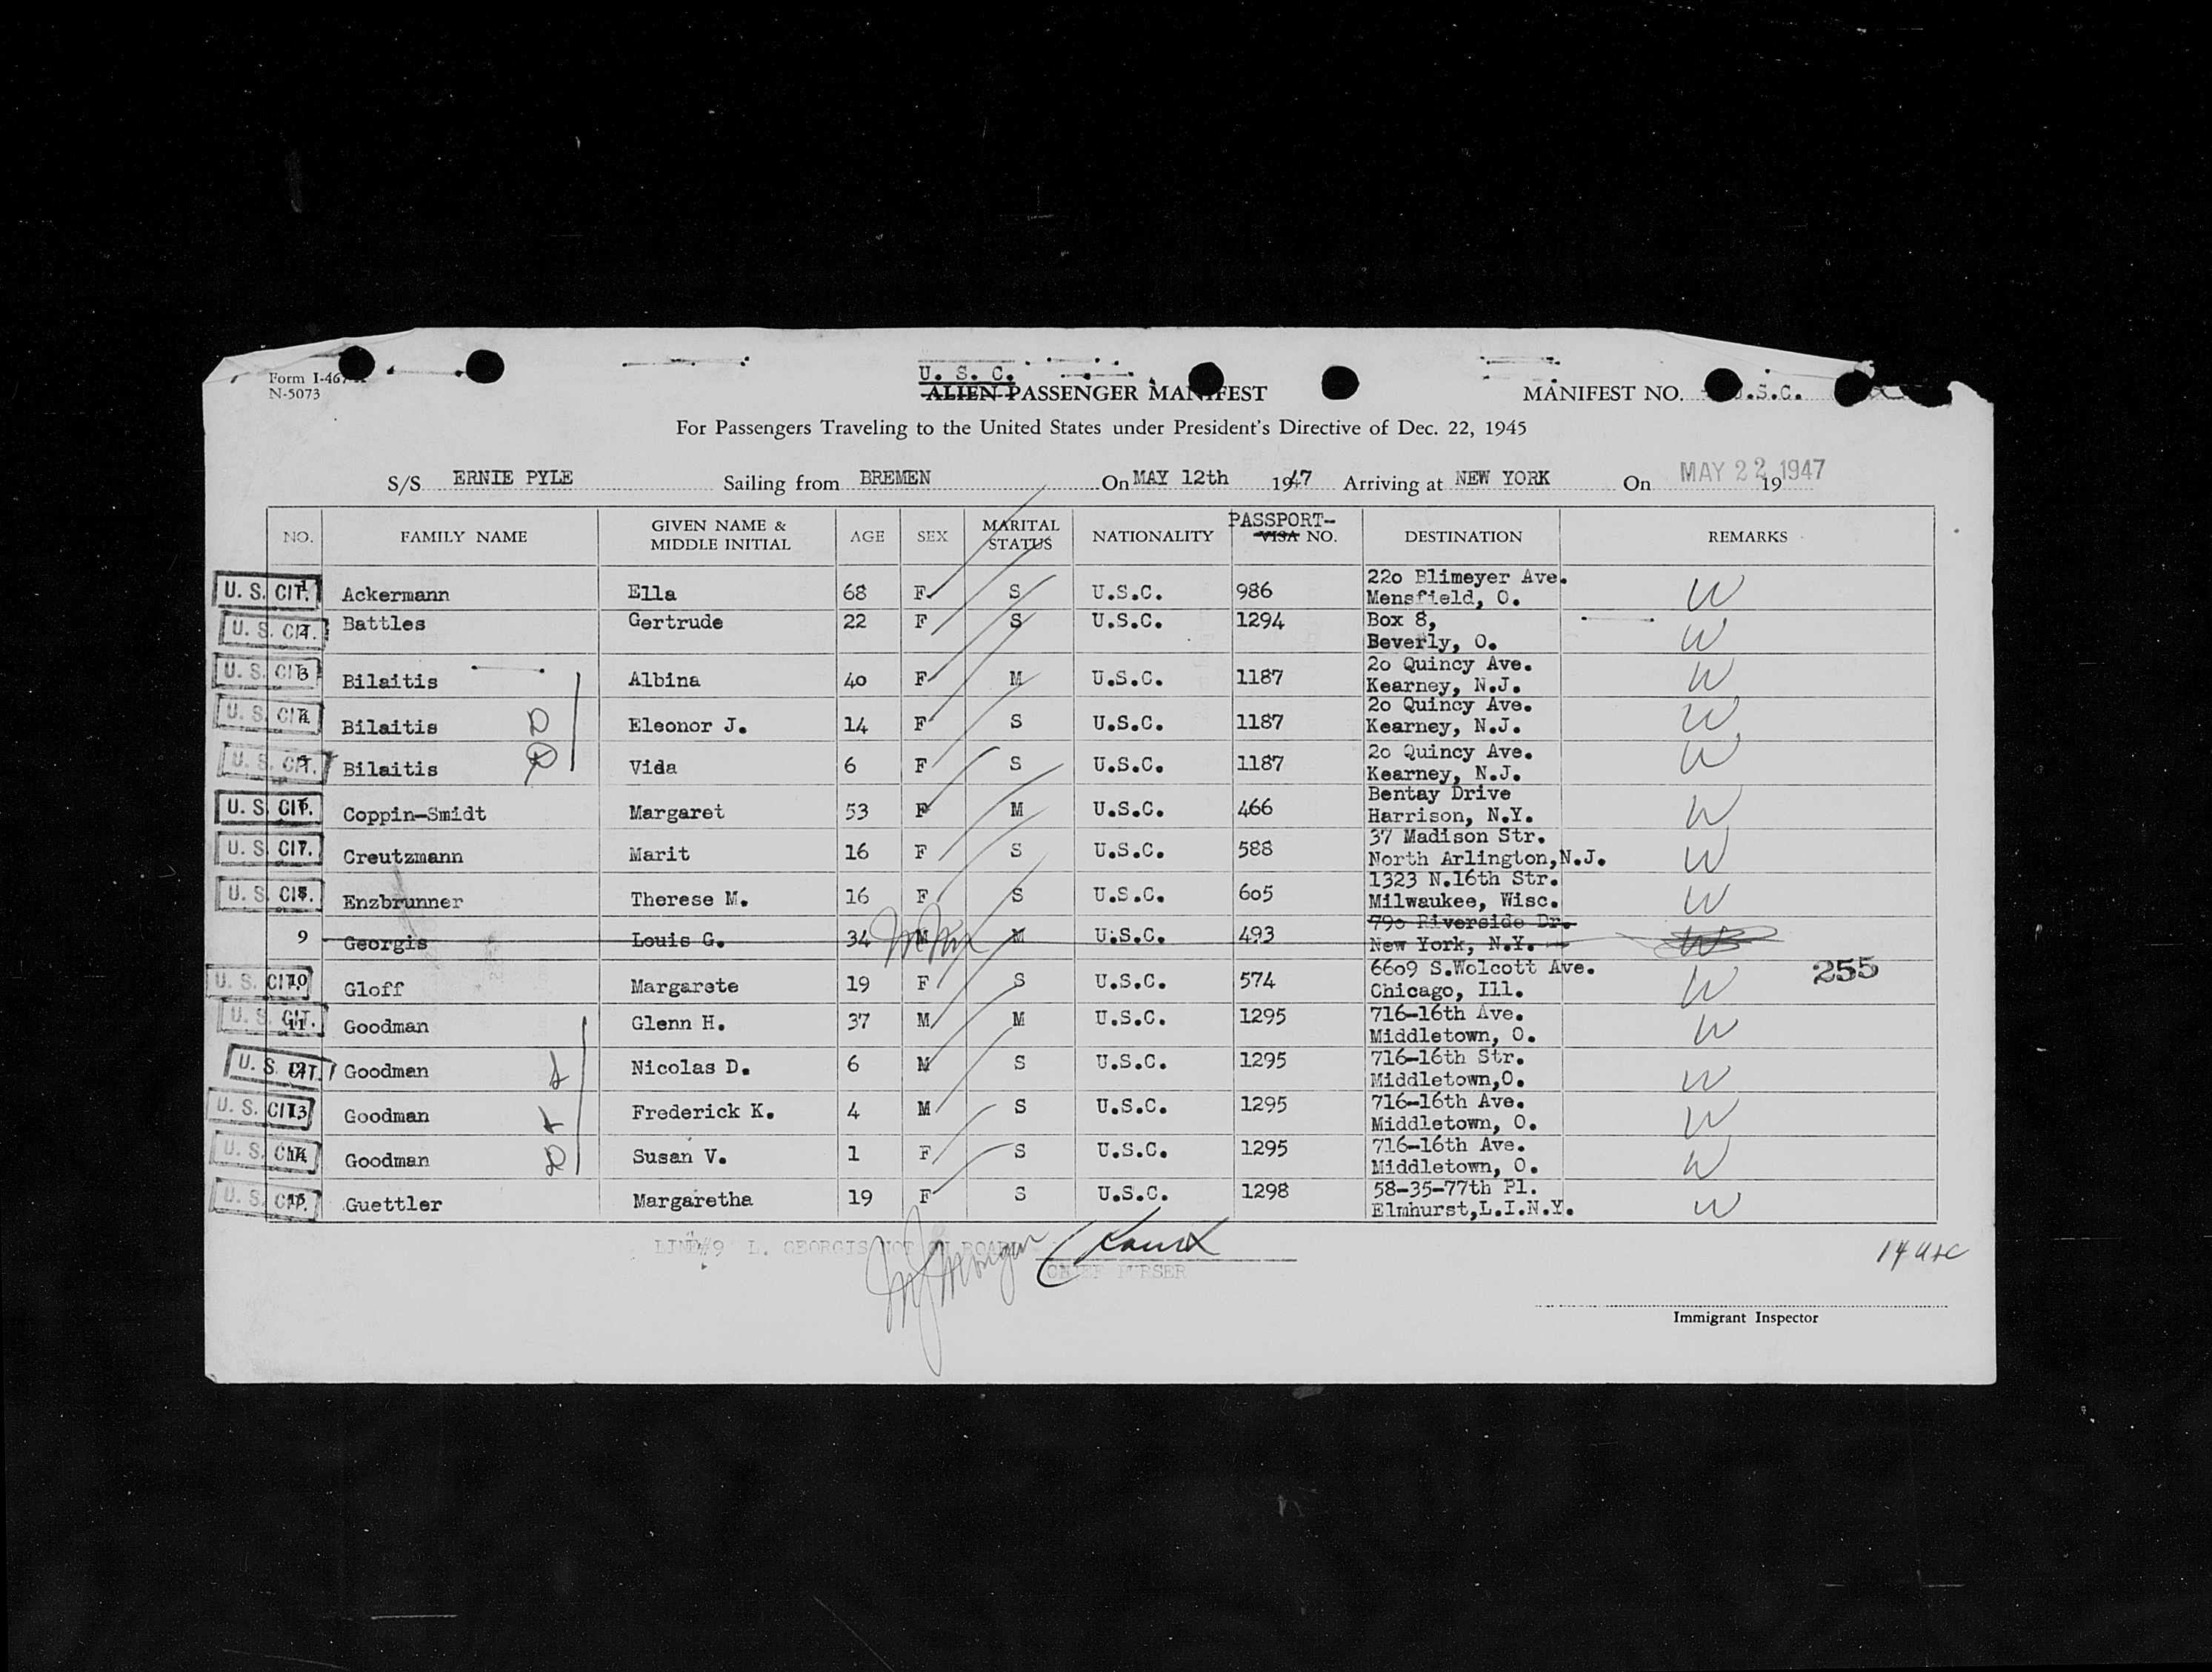 Form I-467
N-5073
U. S. C.
ALIEN PASSENGER MANIFEST
MANIFEST NO. U.S.C.
For Passengers Traveling to the United States under President's Directive of Dec. 22, 1945
S/S ERNIE PYLE Sailing from BREMEN On MAY 12th 1947 Arriving at NEW YORK On MAY 22 1947 19
NO. FAMILY NAME GIVEN NAME & MIDDLE INITIAL AGE SEX MARITAL STATUS NATIONALITY PASSPORT- VISA NO. DESTINATION REMARKS
U. S. CIT. 1 Ackermann Ella 68 F S U.S.C. 986 220 Blimeyer Ave. W
Mensfield, O.
U. S. CIT. 2 Battles Gertrude 22 F S U.S.C. 1294 Box 8, W
Beverly, O.
U. S. CIT. 3 Bilaitis Albina 40 F M U.S.C. 1187 20 Quincy Ave. W
Kearney, N.J.
U. S. CIT. 4 Bilaitis Eleonor J. 14 F S U.S.C. 1187 20 Quincy Ave. W
Kearney, N.J.
U. S. CIT. 5 Bilaitis Vida 6 F S U.S.C. 1187 20 Quincy Ave. W
Kearney, N.J.
U. S. CIT. 6 Coppin-Smidt Margaret 53 F M U.S.C. 466 Bentay Drive W
Harrison, N.Y.
U. S. CIT. 7 Creutzmann Marit 16 F S U.S.C. 588 37 Madison Str. W
North Arlington,N.J.
U. S. CIT. 8 Enzbrunner Therese M. 16 F S U.S.C. 605 1323 N.16th Str. W
Milwaukee, Wisc.
9 Georgis Louis G. 34 M M U.S.C. 493 790 Riverside Dr.
New York, N.Y.
U. S. CIT. 10 Gloff Margarete 19 F S U.S.C. 574 6609 S.Wolcott Ave. W 255
Chicago, Ill.
U. S. CIT. 11 Goodman Glenn H. 37 M M U.S.C. 1295 716-16th Ave. W
Middletown, O.
U. S. CIT. 12 Goodman Nicolas D. 6 M S U.S.C. 1295 716-16th Str. W
Middletown,O.
U. S. CIT. 13 Goodman Frederick K. 4 M S U.S.C. 1295 716-16th Ave. W
Middletown, O.
U. S. CIT. 14 Goodman Susan V. 1 F S U.S.C. 1295 716-16th Ave. W
Middletown, O.
U. S. CIT. 15 Guettler Margaretha 19 F S U.S.C. 1298 58-35-77th Pl. W
Elmhurst,L.I.N.Y.
LINE#9 L. GEORGIS NOT ON BOARD
CHIEF PURSER
14 USC
Immigrant Inspector